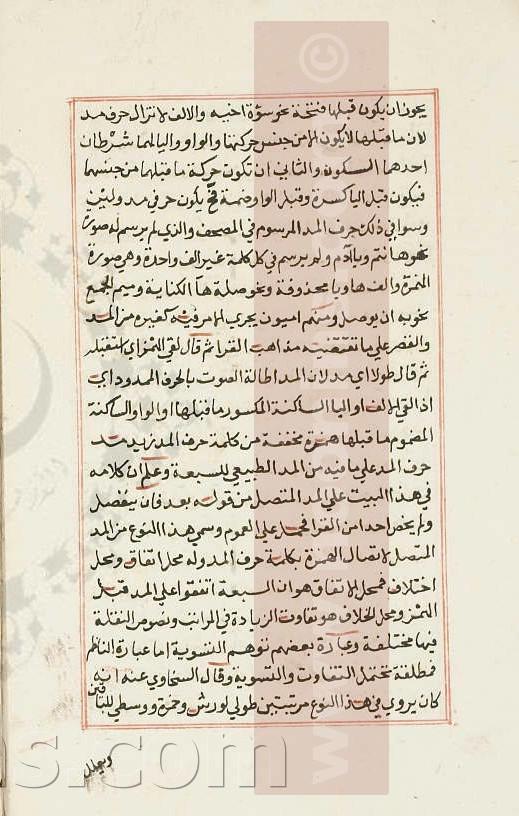 يجوز ان يكون قبلها فتحة نحو سوءة اخيه والالف لا تزال حرف مد
لان ما قبلها لا يكون الا من جنس حركتها والواو واليا لهما شرطان
احدهما السكون والثاني ان تكون حركة ما قبلهما من جنسهما
فيكون قبل اليا كسرة وقبل الواو ضمة فح يكون حرفي مد ولين
وسوا في ذلك حرف المد المرسوم في المصحف والذي لم يرسم له صورة
نحو ها نتم ويا آدم ولم يرسم في كل كلمة غير الف واحدة وهي صورة
الهمزة والف ها ويا محذوفة ونحو صلة هآ الكناية وميم الجمع
نحو به ان يوصل ومنهم اميون يجري الامر فيه كغيره من المد
والقصر على ما تقتضيه مذاهب القرا ثم قال لقي الهمز اي استقبله
ثم قال طولا اي مد لان المد اطالة الصوت بالحرف الممدود اي
اذا لقي الالف او اليا الساكنة المكسور ما قبلها او الواو الساكنة
المضموم ما قبلها همزة مخففة من كلمة حرف المد زيد مد
حرف المد على ما فيه من المد الطبيعي للسبعة وعلم ان كلامه
في هذا البيت على المد المتصل من قوله بعد فان ينفصل
ولم يخص احدا من القرا فحمل على العموم وسمي هذا النوع من المد
المتصل لاتصال الهمزة بكلمة حرف المد وله محل اتفاق ومحل
اختلاف فمحل الاتفاق هو ان السبعة اتفقوا على المد قبل
الهمز ومحل الخلاف هو تفاوت الزيادة في المراتب ونصوص النقلة
فيها مختلفة وعبارة بعضهم توهم التسوية اما عبارة الناظم
فمطلقة تحتمل التفاوت والتسوية وقال السخاوي عنه انه
كان يروي في هذا النوع مرتبتين طولى لورش وحمزة ووسطى للباقين
s.com
©